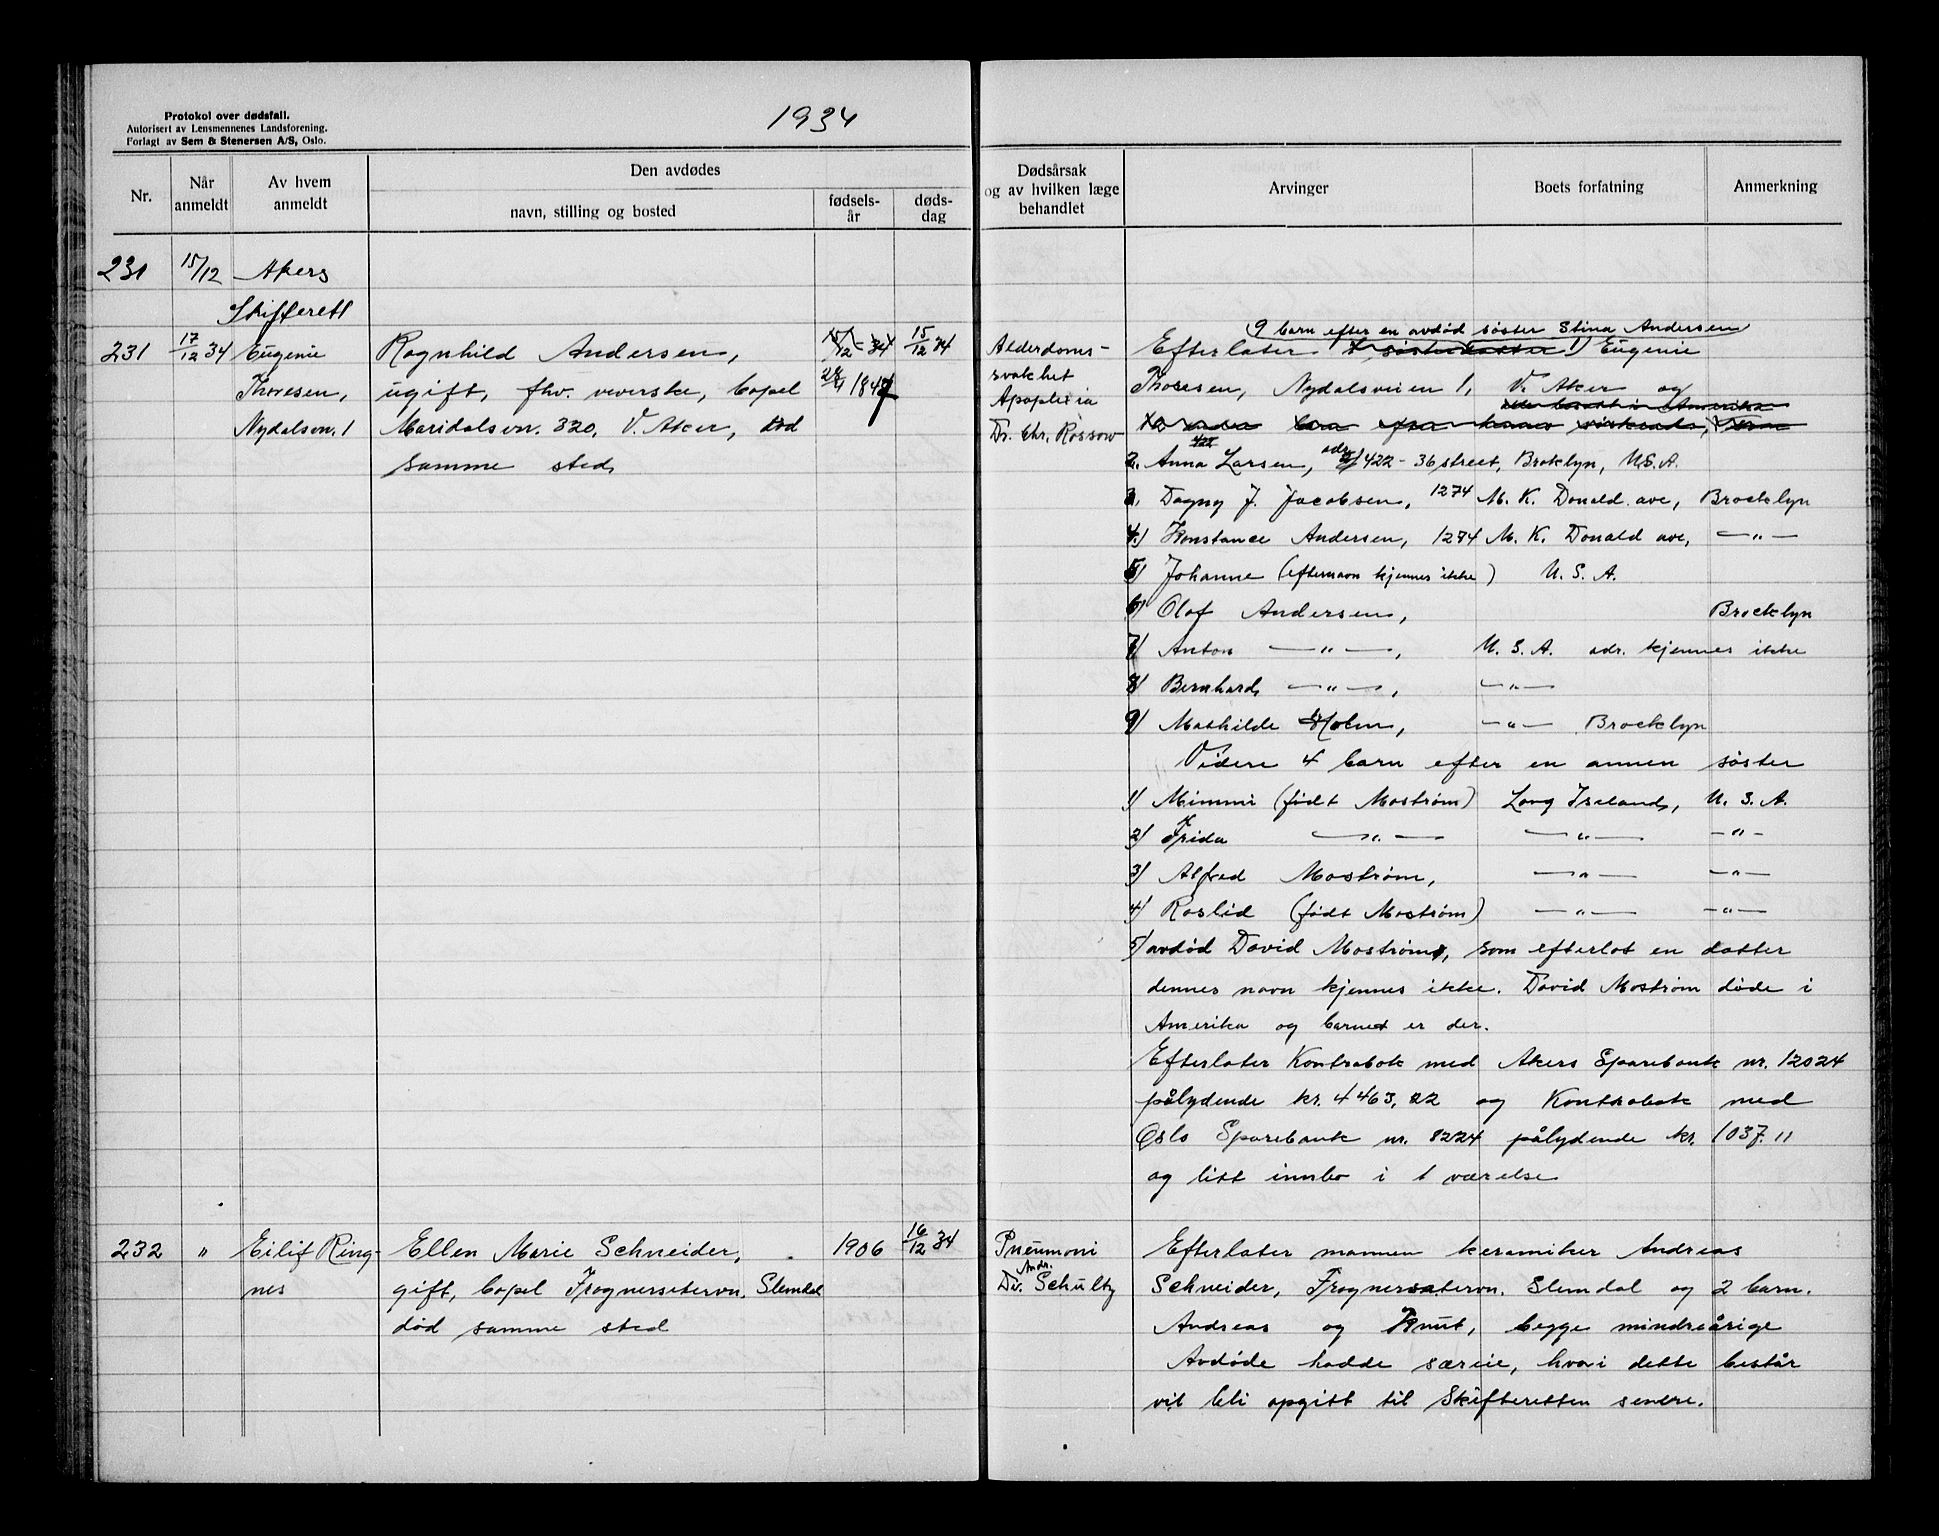 Protokol over dødsfall.
Autorisert av Lensmennenes Landsforening.
Forlagt av Sem & Stenersen A/S, Oslo.
1934
Nr.
Når anmeldt
Av hvem anmeldt
Den avdødes
navn, stilling og bosted
fødsels-år
døds-dag
Dødsårsak og av hvilken læge behandlet
Arvinger
Boets forfatning
Anmerkning
231 15/12 Akers
Skifterett
231 17/12 34 Eugenie
Thoresen,
Nydalsvn. 1
Ragnhild Andersen,
ugift, fhv. veverske, bopel
Maridalsvn. 320, V. Aker, død
samme sted
15/12 - 34
28/4 1847
15/12 34
Alderdoms-
svakhet
Apoplexia
Dr. Chr. Rossow
9 barn efter en avdød søster Stina Andersen
Efterlater 1) Eugenie
Thoresen, Nydalsveien 1, V. Aker og
2. Anna Larsen, adr. 422 - 36 street, Broklyn, U.S.A.
3. Dagny J. Jacobsen, 1274 M. K. Donald ave, Brocklyn
4) Konstance Andersen, 1274 M. K. Donald ave, —"—
5) Johanne (efternavn kjennes ikke) U. S. A.
6) Olaf Andersen, Brocklyn
7) Anton —"—, U. S. A. adr. kjennes ikke
8) Bernhard —"—, —"—
9) Mathilde Holm, —"— Brocklyn
Videre 4 barn efter en annen søster
1) Mimmi (født Mostrøm) Long Iseland, U. S. A.
2) Frida —"— —"— —"—
3) Alfred Mostrøm, —"— —"—
4) Raslid (født Mostrøm) —"— —"—
5) avdød David Mostrøm, som efterlot en datter
dennes navn kjennes ikke. David Mostrøm døde i
Amerika og barnet er der.
Efterlater Kontrabok med Akers Sparebank nr. 12024
pålydende kr. 4463,22 og Kontrabok med
Oslo Sparebank nr. 8224 pålydende kr. 1037.11
og litt innbo i 1 værelse
232 " Eilif Ring-
nes
Ellen Marie Schneider,
gift, bopel Frognersetervn. Slemdal
død samme sted
1906
16/12 34
Pneumoni
Dr. Andr. Schultz
Efterlater mannen keramiker Andreas
Schneider, Frognersætervn. Slemdal og 2 barn.
Andreas og Knut, begge mindreårige
Avdøde hadde særeie, hvori dette består
vil bli opgitt til Skifteretten senere.